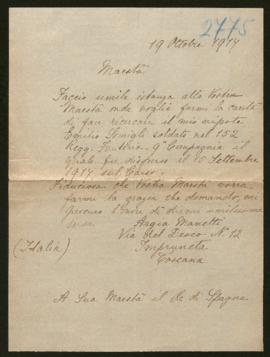 2775
19 Ottobre 1917
Maestà
Faccio umile istanza alla Vostra
Maestà onde voglia farmi la carità
di far ricercare il mio nipote
Emilio soldato nel 152
Regg. Fanteria 9ª Compagnia il
quale fu disperso il 10 Settembre
1917 sul Carso.
Fiduciosa che Vostra Maestà vorrà
farmi la grazia che domando, mi
di dirmi umilissima
Argia Manetti
Via del Desco Nº 12
(Italia) Impruneta
Toscana
A Sua Maestà il Re di Spagna